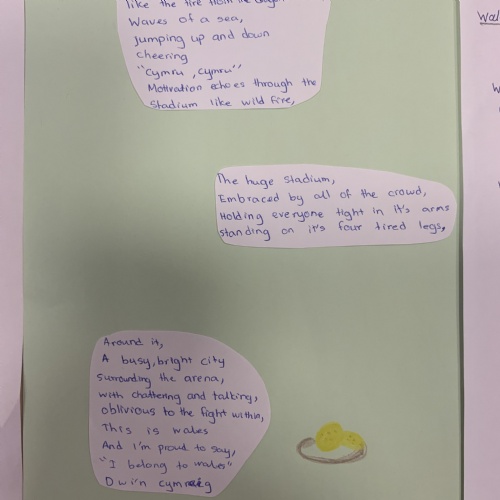 like the fire from the dragon
Waves of a sea,
Jumping up and down
cheering
"Cymru, Cymru"
Motivation echoes through the
Stadium like wild fire,
The huge stadium,
Embraced by all of the crowd,
Holding everyone tight in it's arms
standing on it's four tired legs,
Around it,
A busy, bright city
Surrounding the arena,
with chattering and talking,
oblivious to the fight within,
This is wales
And I'm proud to say,
"I belong to wales"
Dwi'n cymraeg
Wal